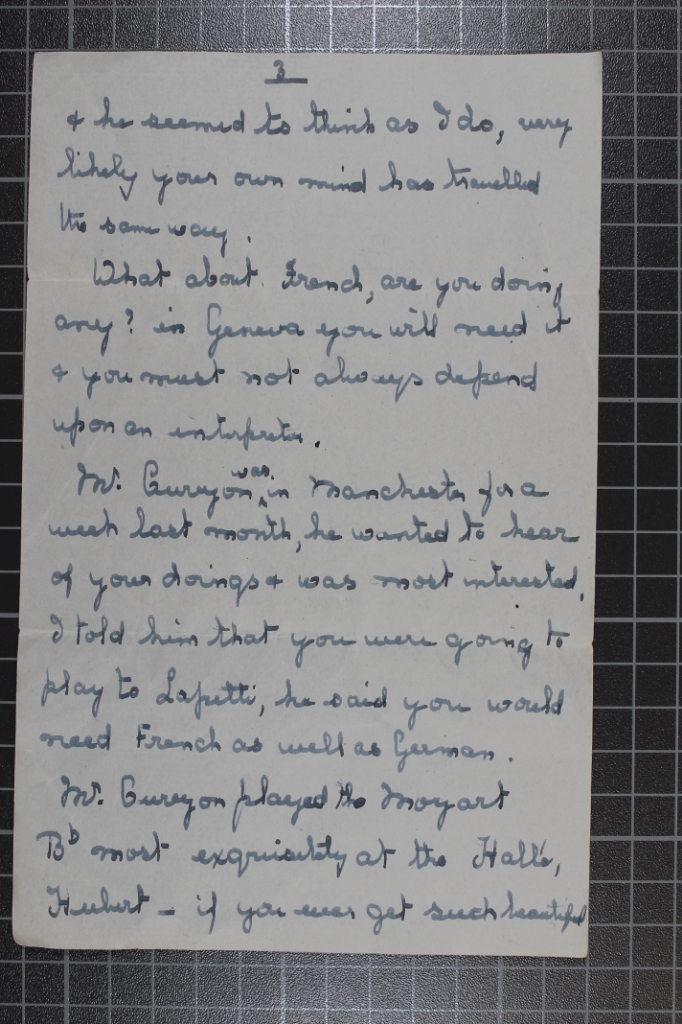 3
& he seemed to think as I do, very
likely your own mind has travelled
the same way.
What about French, are you doing
any? in Geneva you will need it
& you must not always depend
upon an interpreter.
Mr. Curzon was in Manchester for a
week last month, he wanted to hear
of your doings & was most interested,
I told him that you were going to
play to Lapetti, he said you would
need French as well as German.
Mr. Curzon played the Mozart
Bb most exquisitely at the Hallé,
Hubert – if you ever get such beautiful